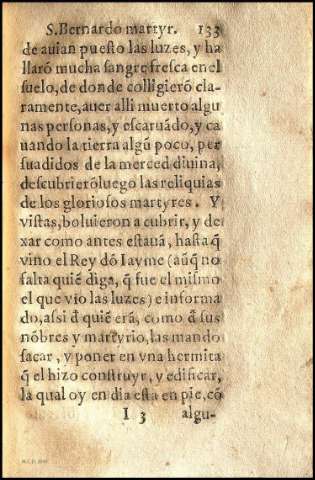 S. Bernardo martyr. 133
de auian puesto las luzes, y ha
llarõ mucha sangre fresca en el
suelo, de donde colligierõ cla-
ramente, auer alli muerto algu
nas personas, y escaruãdo, y ca
uando la tierra algũ poco, per
suadidos de la merced diuina,
descubrierõ luego las reliquias
de los gloriosos martyres. Y
vistas, boluieron a cubrir, y de
xar como antes estauã, hasta q̃
vino el Rey dõ Iayme (aũq̃ no
falta quiẽ diga, q̃ fue el mismo
el que vio las luzes) e informa
do, assi d̃ quiẽ erã, como d̃ sus
nõbres y martyrio, las mando
sacar, y poner en vna hermita
q̃ el hizo construyr, y edificar,
la qual oy en dia esta en pie, cõ
I 3 algu-